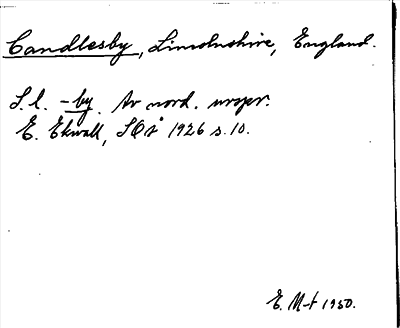 Candlesby, Lincolnshire, England.
S.l. -by. Av nord. urspr.
E. Ekwall, SOÅ 1926 s. 10.
E. M-t 1950.